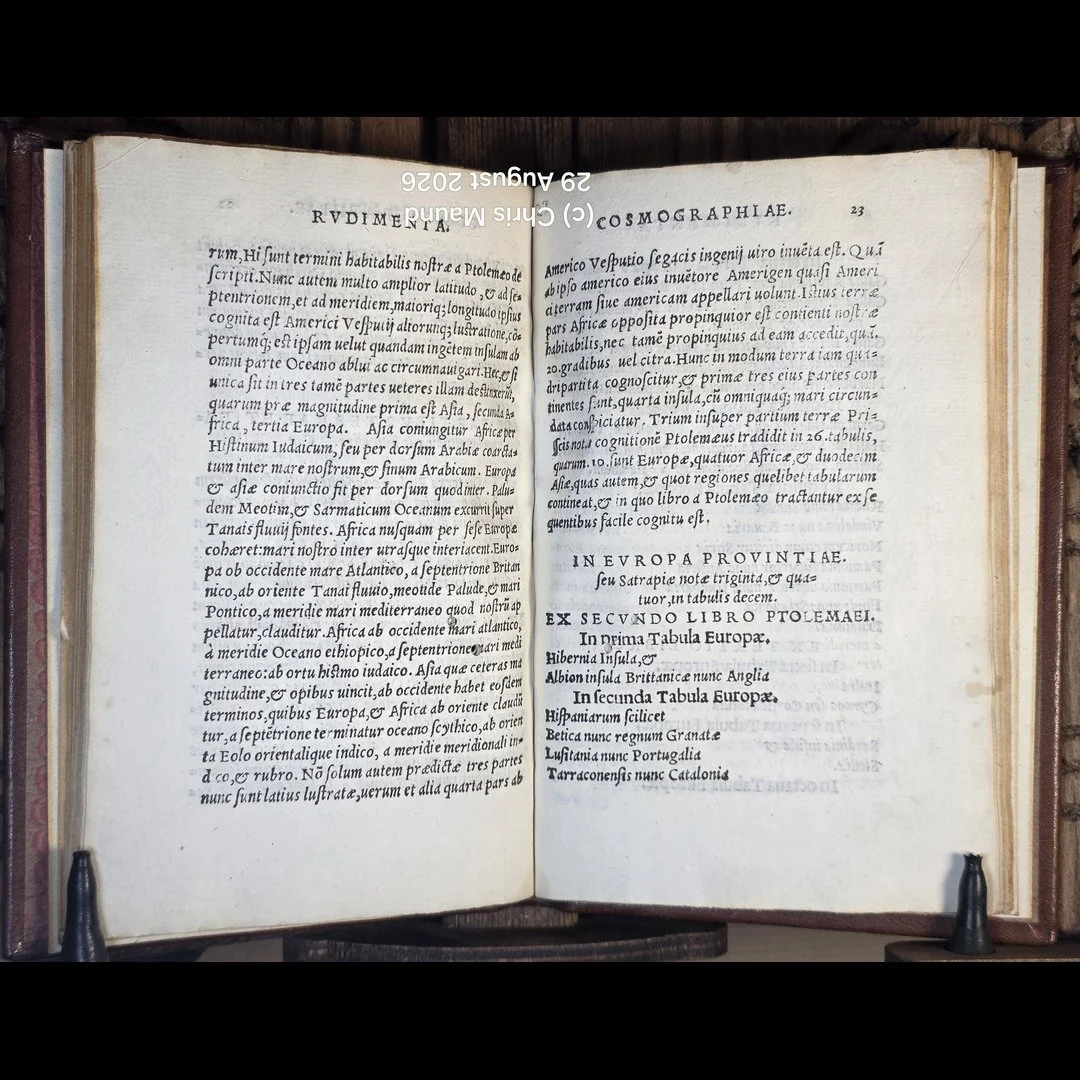 29 August 2026
(c) Chris Maund
RVDIMENTA.
rum, Hi sunt termini habitabilis nostræ a Ptolemæo de
scripti. Nunc autem multo amplior latitudo, & ad se=
ptentrionem, et ad meridiem, maioriq; longitudo ipsius
cognita est Americi Vesputij aliorunq; lustratione, cō=
pertumq́; est ipsam uelut quandam ingētem insulam ab
omni parte Oceano ablui ac circumnauigari. Hec, & si
unica sit in tres tamē partes ueteres illam destinxerūt,
quarum præ magnitudine prima est Asia, secunda A=
frica, tertia Europa. Asia coniungitur Africæ per
Histinum Iudaicum, seu per dorsum Arabiæ coarcta=
tum inter mare nostrum, & sinum Arabicum. Europæ
& asiæ coniunctio fit per dorsum quod inter. Palu=
dem Meotim, & Sarmaticum Oceanum excurrit super
Tanais fluuij fontes. Africa nusquam per sese Europæ
cohæret: mari nostro inter utrasque interiacent. Euro=
pa ob occidente mare Atlantico, a septentrione Britan
nico, ab oriente Tanai fluuio, meotide Palude, & mari
Pontico, a meridie mari mediterraneo quod nostrū ap
pellatur, clauditur. Africa ab occidente mari atlantico,
à meridie Oceano ethiopico, a septentrione mari medi
terraneo: ab ortu histmo iudaico. Asia quæ ceteras ma
gnitudine, & opibus uincit, ab occidente habet eosdem
terminos, quibus Europa, & Africa ab oriente claudū
tur, a septētrione terminatur oceano scythico, ab orien
ta Eolo orientalique indico, a meridie meridionali in=
d co, & rubro. Nō solum autem prædictæ tres partes
nunc sunt latius lustratæ, uerum et alia quarta pars ab
COSMOGRAPHIAE. 23
Americo Vesputio segacis ingenij uiro inuēta est. Quā
ab ipso americo eius inuētore Amerigen quasi Ameri
ci terram siue americam appellari uolunt. Istius terræ
pars Africæ opposita propinquior est contienti nostræ
habitabilis, nec tamē propinquius ad eam accedit, quā.
20. gradibus uel citra. Hunc in modum terra iam qua=
dripartita cognoscitur, & primæ tres eius partes con
tinentes sunt, quarta insula, cū omniquaq; mari circun=
data conspiciatur. Trium insuper partium terræ Pri=
scis nota cognitionē Ptolemæus tradidit in 26. tabulis,
quarum. 10. sunt Europæ, quatuor Africæ, & duodecim
Asiæ, quas autem, & quot regiones quelibet tabularum
contineat, & in quo libro a Ptolemæo tractantur ex se
quentibus facile cognitu est.
IN EVROPA PROVINTIAE.
seu Satrapiæ notæ triginta, & qua=
tuor, in tabulis decem.
EX SECVNDO LIBRO PTOLEMAEI.
In prima Tabula Europæ.
Hibernia Insula, &
Albion insula Brittanicæ nunc Anglia
In secunda Tabula Europæ.
Hispaniarum scilicet
Betica nunc regnum Granatæ
Lusitania nunc Portugalia
Tarraconensis nunc Catalonia